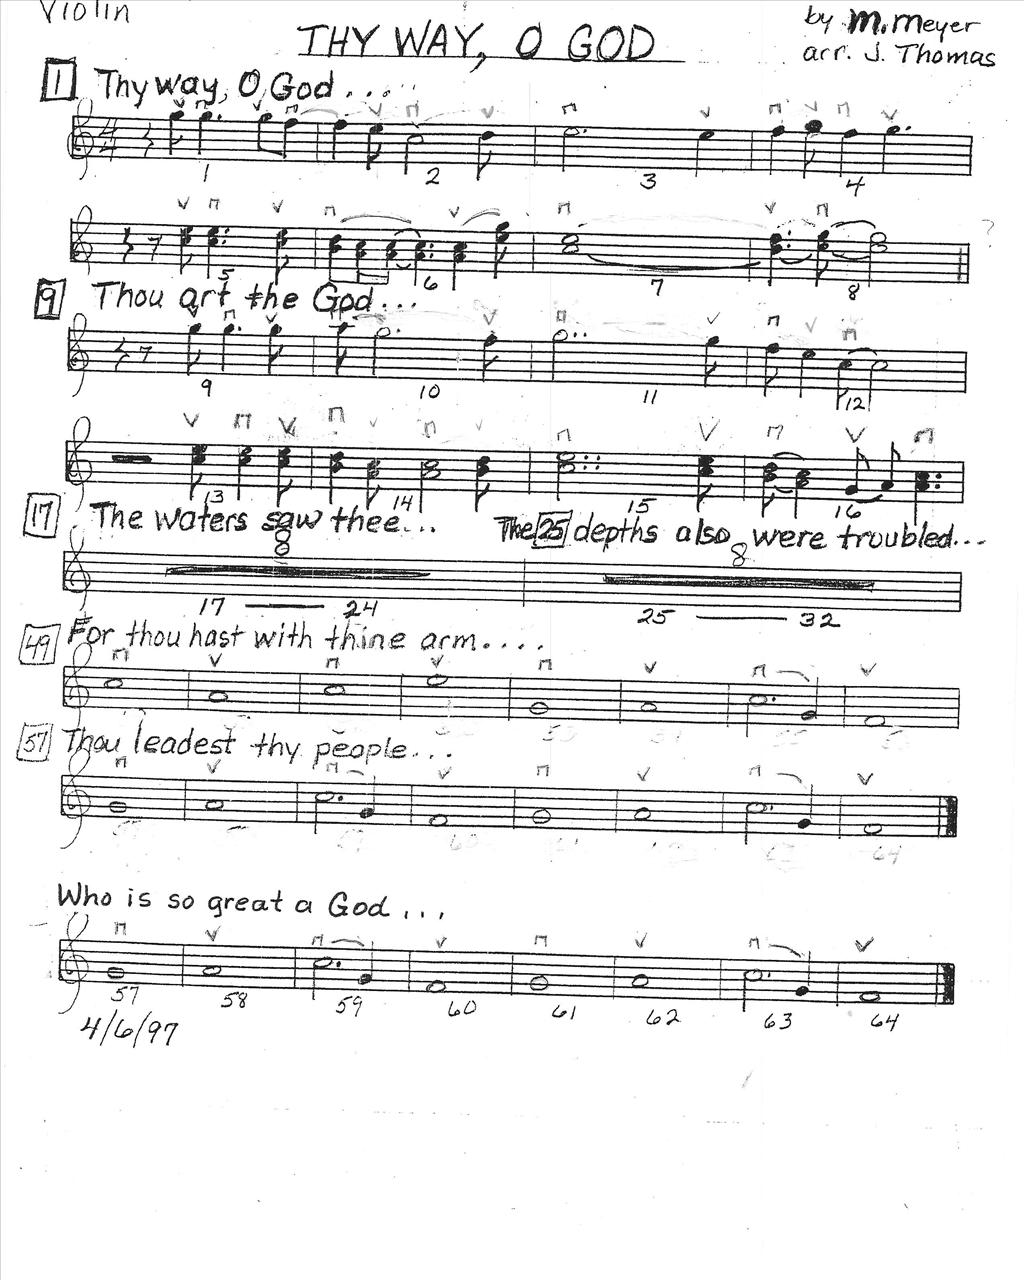 Violin
THY WAY, O GOD
by M. Meyer
arr. J. Thomas
1 Thy way, O God . . .
1 2 3 4
5 6 7 8
?
9 Thou art the God...
9 10 11 12
13 14 15 16
17 The waters saw thee... The 25 depths also were troubled...
8 8
17 — 24 25 — 32
49 For thou hast with thine arm....
57 Thou leadest thy people...
60 61 63 64
Who is so great a God ...
57 58 59 60 61 62 63 64
4/6/97